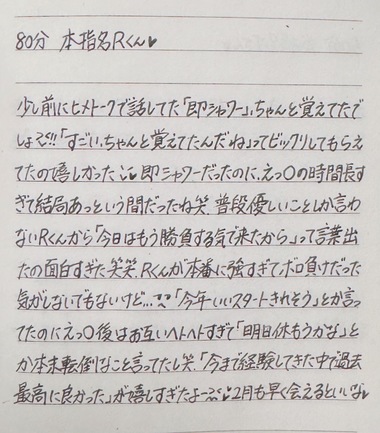 80分 本指名Rくん♥
少し前にヒメトークで話してた「即シャワー」、ちゃんと覚えてたで
しょ!!!「すごい、ちゃんと覚えてたんだね」ってビックリしてもらえ
てたの嬉しかった 即シャワーだったのに、えっ〇の時間長す
ぎて結局あっという間だったね笑、普段優しいことしか言わ
ないRくんから「今日はもう勝負する気で来たから」って言葉出
たの面白すぎた笑笑、Rくんが本番に強すぎてボロ負けだった
気がしないでもないけど...「今年いいスタートきれそう」とか言っ
てたのにえっ〇後はお互いヘトヘトすぎて「明日休もうかな」と
か本末転倒なこと言ってたし笑、「今まで経験してきた中で過去
最高に良かった」が嬉しすぎたよー♥2月も早く会えるといいな♥